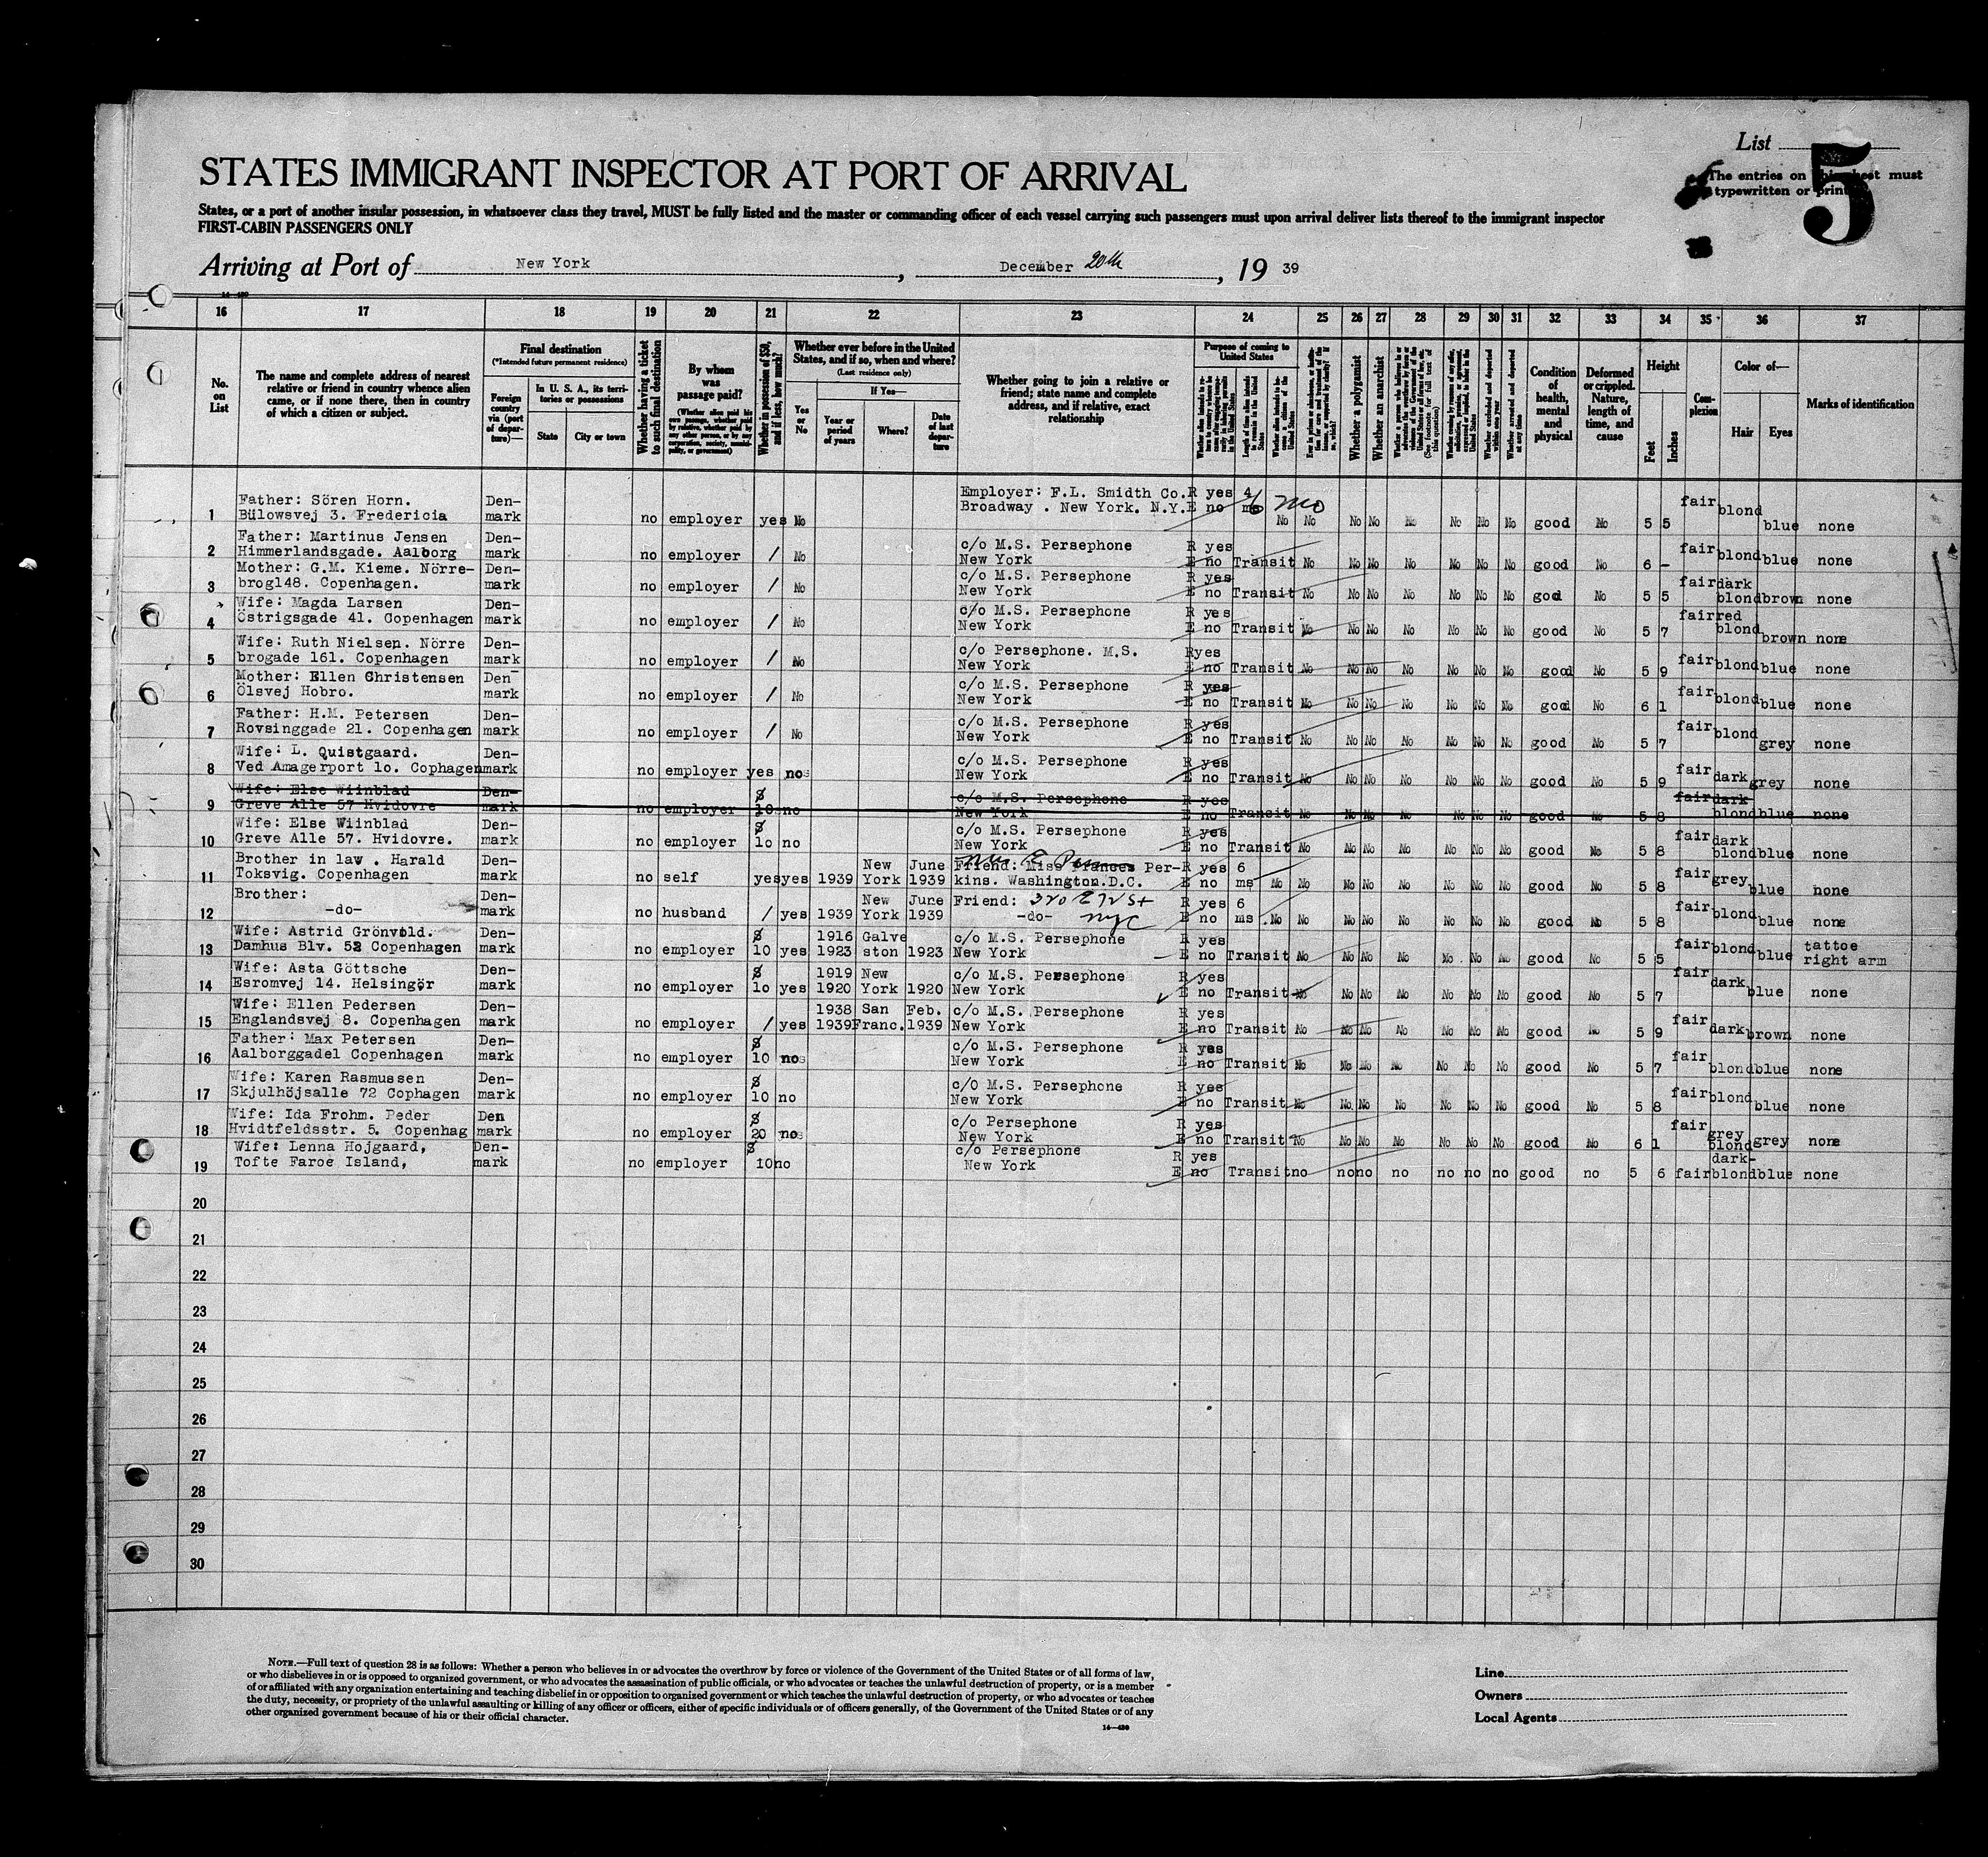 List
5
The entries on this sheet must
typewritten or print
STATES IMMIGRANT INSPECTOR AT PORT OF ARRIVAL
States, or a port of another insular possession, in whatsoever class they travel, MUST be fully listed and the master or commanding officer of each vessel carrying such passengers must upon arrival deliver lists thereof to the immigrant inspector
FIRST-CABIN PASSENGERS ONLY
Arriving at Port of New York, December 20th, 19 39
16 17 18 19 20 21 22 23 24 25 26 27 28 29 30 31 32 33 34 35 36 37
No. on List
The name and complete address of nearest relative or friend in country whence alien came, or if none there, then in country of which a citizen or subject.
Final destination
(*Intended future permanent residence)
Foreign country via (port of departure)—
In U. S. A., its territories or possessions
State
City or town
Whether having a ticket to such final destination
By whom was passage paid?
(Whether alien paid his own passage, whether paid by relative, whether paid by any other person, or by any corporation, society, municipality, or government)
Whether in possession of $50, and if less, how much?
Whether ever before in the United States, and if so, when and where?
(Last residence only)
Yes or No
If Yes—
Year or period of years
Where?
Date of last departure
Whether going to join a relative or friend; state name and complete address, and if relative, exact relationship
Purpose of coming to United States
Whether a polygamist
Whether an anarchist
Condition of health, mental and physical
Deformed or crippled. Nature, length of time, and cause
Height
Feet
Inches
Complexion
Color of—
Hair
Eyes
Marks of identification
1 Father: Sören Horn. Den- Employer: F.L. Smidth Co. R yes 4 6 mo fair
Bülowsvej 3. Fredericia mark no employer yes No Broadway . New York. N.Y. E no ms No No No No No No No No good No 5 5 blond blue none
2 Father: Martinus Jensen Den- c/o M.S. Persephone R yes
Himmerlandsgade. Aalborg mark no employer / No New York E no Transit No No No No No No No good No 6 - fair blond blue none
3 Mother: G.M. Kieme. Nörre- Den- c/o M.S. Persephone R yes
brog148. Copenhagen. mark no employer / No New York E no Transit No No No No No No No good No 5 5 fair dark blond brown none
4 Wife: Magda Larsen Den- c/o M.S. Persephone R yes
Östrigsgade 41. Copenhagen mark no employer / No New York E no Transit No No No No No No No good No 5 7 fair red blond brown none
5 Wife: Ruth Nielsen. Nörre Den- c/o Persephone. M.S. Ryes
brogade 161. Copenhagen mark no employer / No New York E no Transit No No No No No No No good No 5 9 fair blond blue none
6 Mother: Ellen Christensen Den- c/o M.S. Persephone R yes
Ölsvej Hobro. mark no employer / No New York E no Transit No No No No No No No good No 6 1 fair blond blue none
7 Father: H.M. Petersen Den- c/o M.S. Persephone R yes
Rovsinggade 21. Copenhagen mark no employer / No New York E no Transit No No No No No No No good No 5 7 fair blond grey none
8 Wife: L. Quistgaard. Den- c/o M.S. Persephone R yes
Ved Amagerport 1o. Cophagen mark no employer yes no New York E no Transit No No No No No No No good No 5 9 fair dark grey none
9 Wife: Else Wiinblad Den- $ c/o M.S. Persephone R yes
Greve Alle 57 Hvidovre mark no employer 10 no New York E no Transit No No No No No No No good No 5 8 fair dark blond blue none
10 Wife: Else Wiinblad Den- $ c/o M.S. Persephone R yes
Greve Alle 57. Hvidovre. mark no employer 1o no New York E no Transit No No No No No No No good No 5 8 fair dark blond blue none
11 Brother in law . Harald Den- New June Friend: Miss Frances Per- R yes 6
Toksvig. Copenhagen mark no self yes yes 1939 York 1939 kins. Washington.D.C. E no ms No No No No No No No No good No 5 8 fair grey blue none
12 Brother: Den- New June Friend: 320 E 72 St R yes 6
-do- mark no husband / yes 1939 York 1939 -do- NYC E no ms. No No No No No No No No good No 5 8 fair blond blue none
13 Wife: Astrid Grönvold. Den- $ 1916 Galve c/o M.S. Persephone R yes
Damhus Blv. 52 Copenhagen mark no employer 10 yes 1923 ston 1923 New York E no Transit No No No No No No No good No 5 5 fair blond blue tattoe right arm
14 Wife: Asta Göttsche Den- $ 1919 New c/o M.S. Persephone R yes
Esromvej 14. Helsingör mark no employer 1o yes 1920 York 1920 New York E no Transit No No No No No No No good No 5 7 fair dark blue none
15 Wife: Ellen Pedersen Den- 1938 San Feb. c/o M.S. Persephone R yes
Englandsvej 8. Copenhagen mark no employer / yes 1939 Franc. 1939 New York E no Transit No No No No No No No good No 5 9 fair dark brown none
16 Father: Max Petersen Den- $ c/o M.S. Persephone R yes
Aalborggade1 Copenhagen mark no employer 10 no New York E no Transit No No No No No No No good No 5 7 fair blond blue none
17 Wife: Karen Rasmussen Den- $ c/o M.S. Persephone R yes
Skjulhöjsalle 72 Cophagen mark no employer 10 no New York E no Transit No No No No No No No good No 5 8 fair blond blue none
18 Wife: Ida Frohm. Peder Den $ c/o Persephone R yes
Hvidtfeldsstr. 5. Copenhag mark no employer 20 no New York E no Transit No No No No No No No good No 6 1 fair grey blond grey none
19 Wife: Lenna Hojgaard, Den- $ c/o Persephone R yes
Tofte Faroe Island, mark no employer 10 no New York E no Transit no no no no no no no good no 5 6 fair dark- blond blue none
20
21
22
23
24
25
26
27
28
29
30
NOTE.—Full text of question 28 is as follows: Whether a person who believes in or advocates the overthrow by force or violence of the Government of the United States or of all forms of law,
or who disbelieves in or is opposed to organized government, or who advocates the assassination of public officials, or who advocates or teaches the unlawful destruction of property, or is a member
of or affiliated with any organization entertaining and teaching disbelief in or opposition to organized government or which teaches the unlawful destruction of property, or who advocates or teaches
the duty, necessity, or propriety of the unlawful assaulting or killing of any officer or officers, either of specific individuals or of officers generally, of the Government of the United States or of any
other organized government because of his or their official character.
14—430
Line
Owners
Local Agents